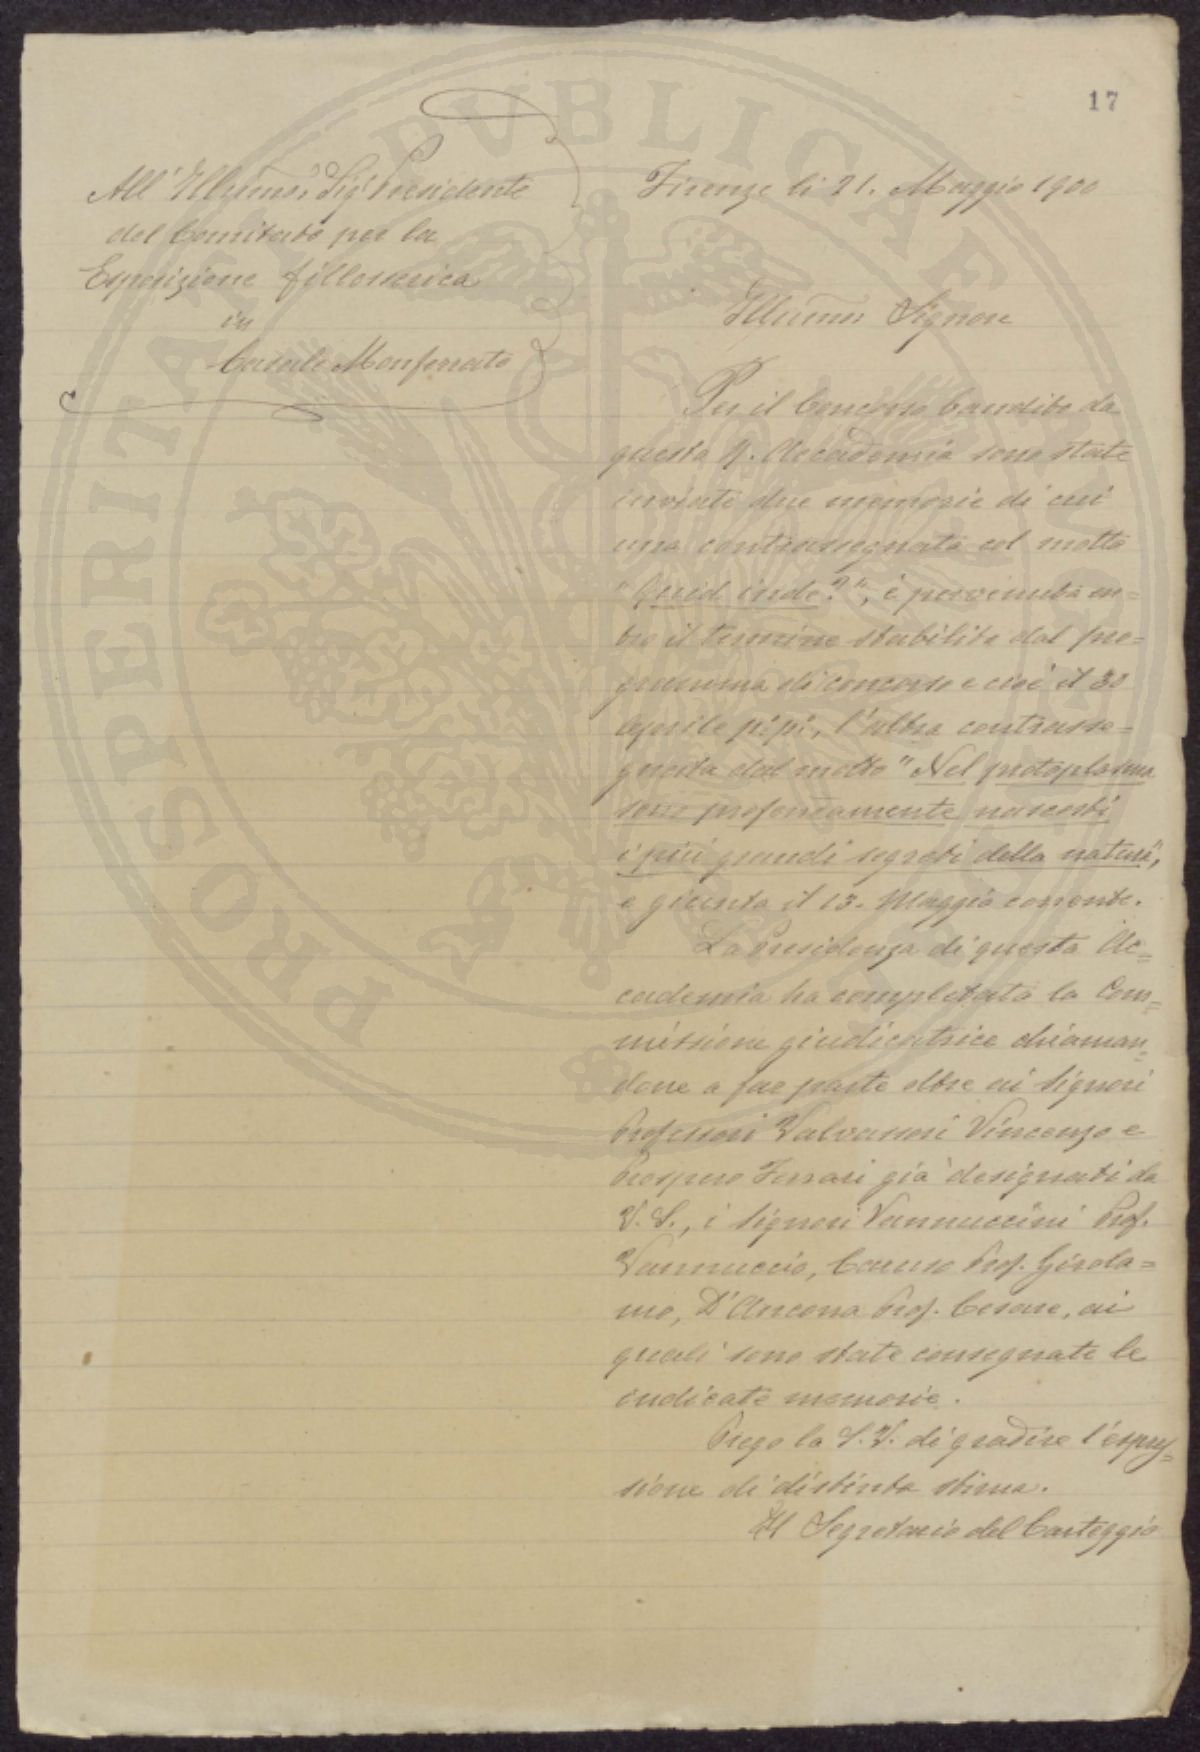 17
All' Illumo Sigr Presidente
del Comitato per la
Esposizione fillosserica
in
Casale Monferrato
Firenze li 21. Maggio 1900
Illumo Signore
Per il Concorso bandito da
questa R. Accademia sono state
inviate due memorie di cui
una contrassegnata col motto
"Quid inde?", è pervenuta en=
tro il termine stabilito dal pro=
gramma di concorso e cioè il 30
aprile p:p:, l'altra contrasse=
gnata dal motto "Nel protoplasma
sono profondamente nascosti
i più grandi segreti della natura",
e giunta il 13. Maggio corrente.
La Presidenza di questa Ac=
cademia ha completata la Com=
missione giudicatrice chiaman=
done a far parte oltre ai Signori
Professori Valvassori Vincenzo e
Prospero Ferrari già designati da
V. S., i Signori Vannuccini Prof.
Vannuccio, Caruso Prof. Girola=
mo, D'Ancona Prof. Cesare, ai
quali sono state consegnate le
indicate memorie.
Prego la S. V. di gradire l'espres=
sione di distinta stima.
Il Segretario del Carteggio
PROSPERITATI PVBLICAE AVGENDAE